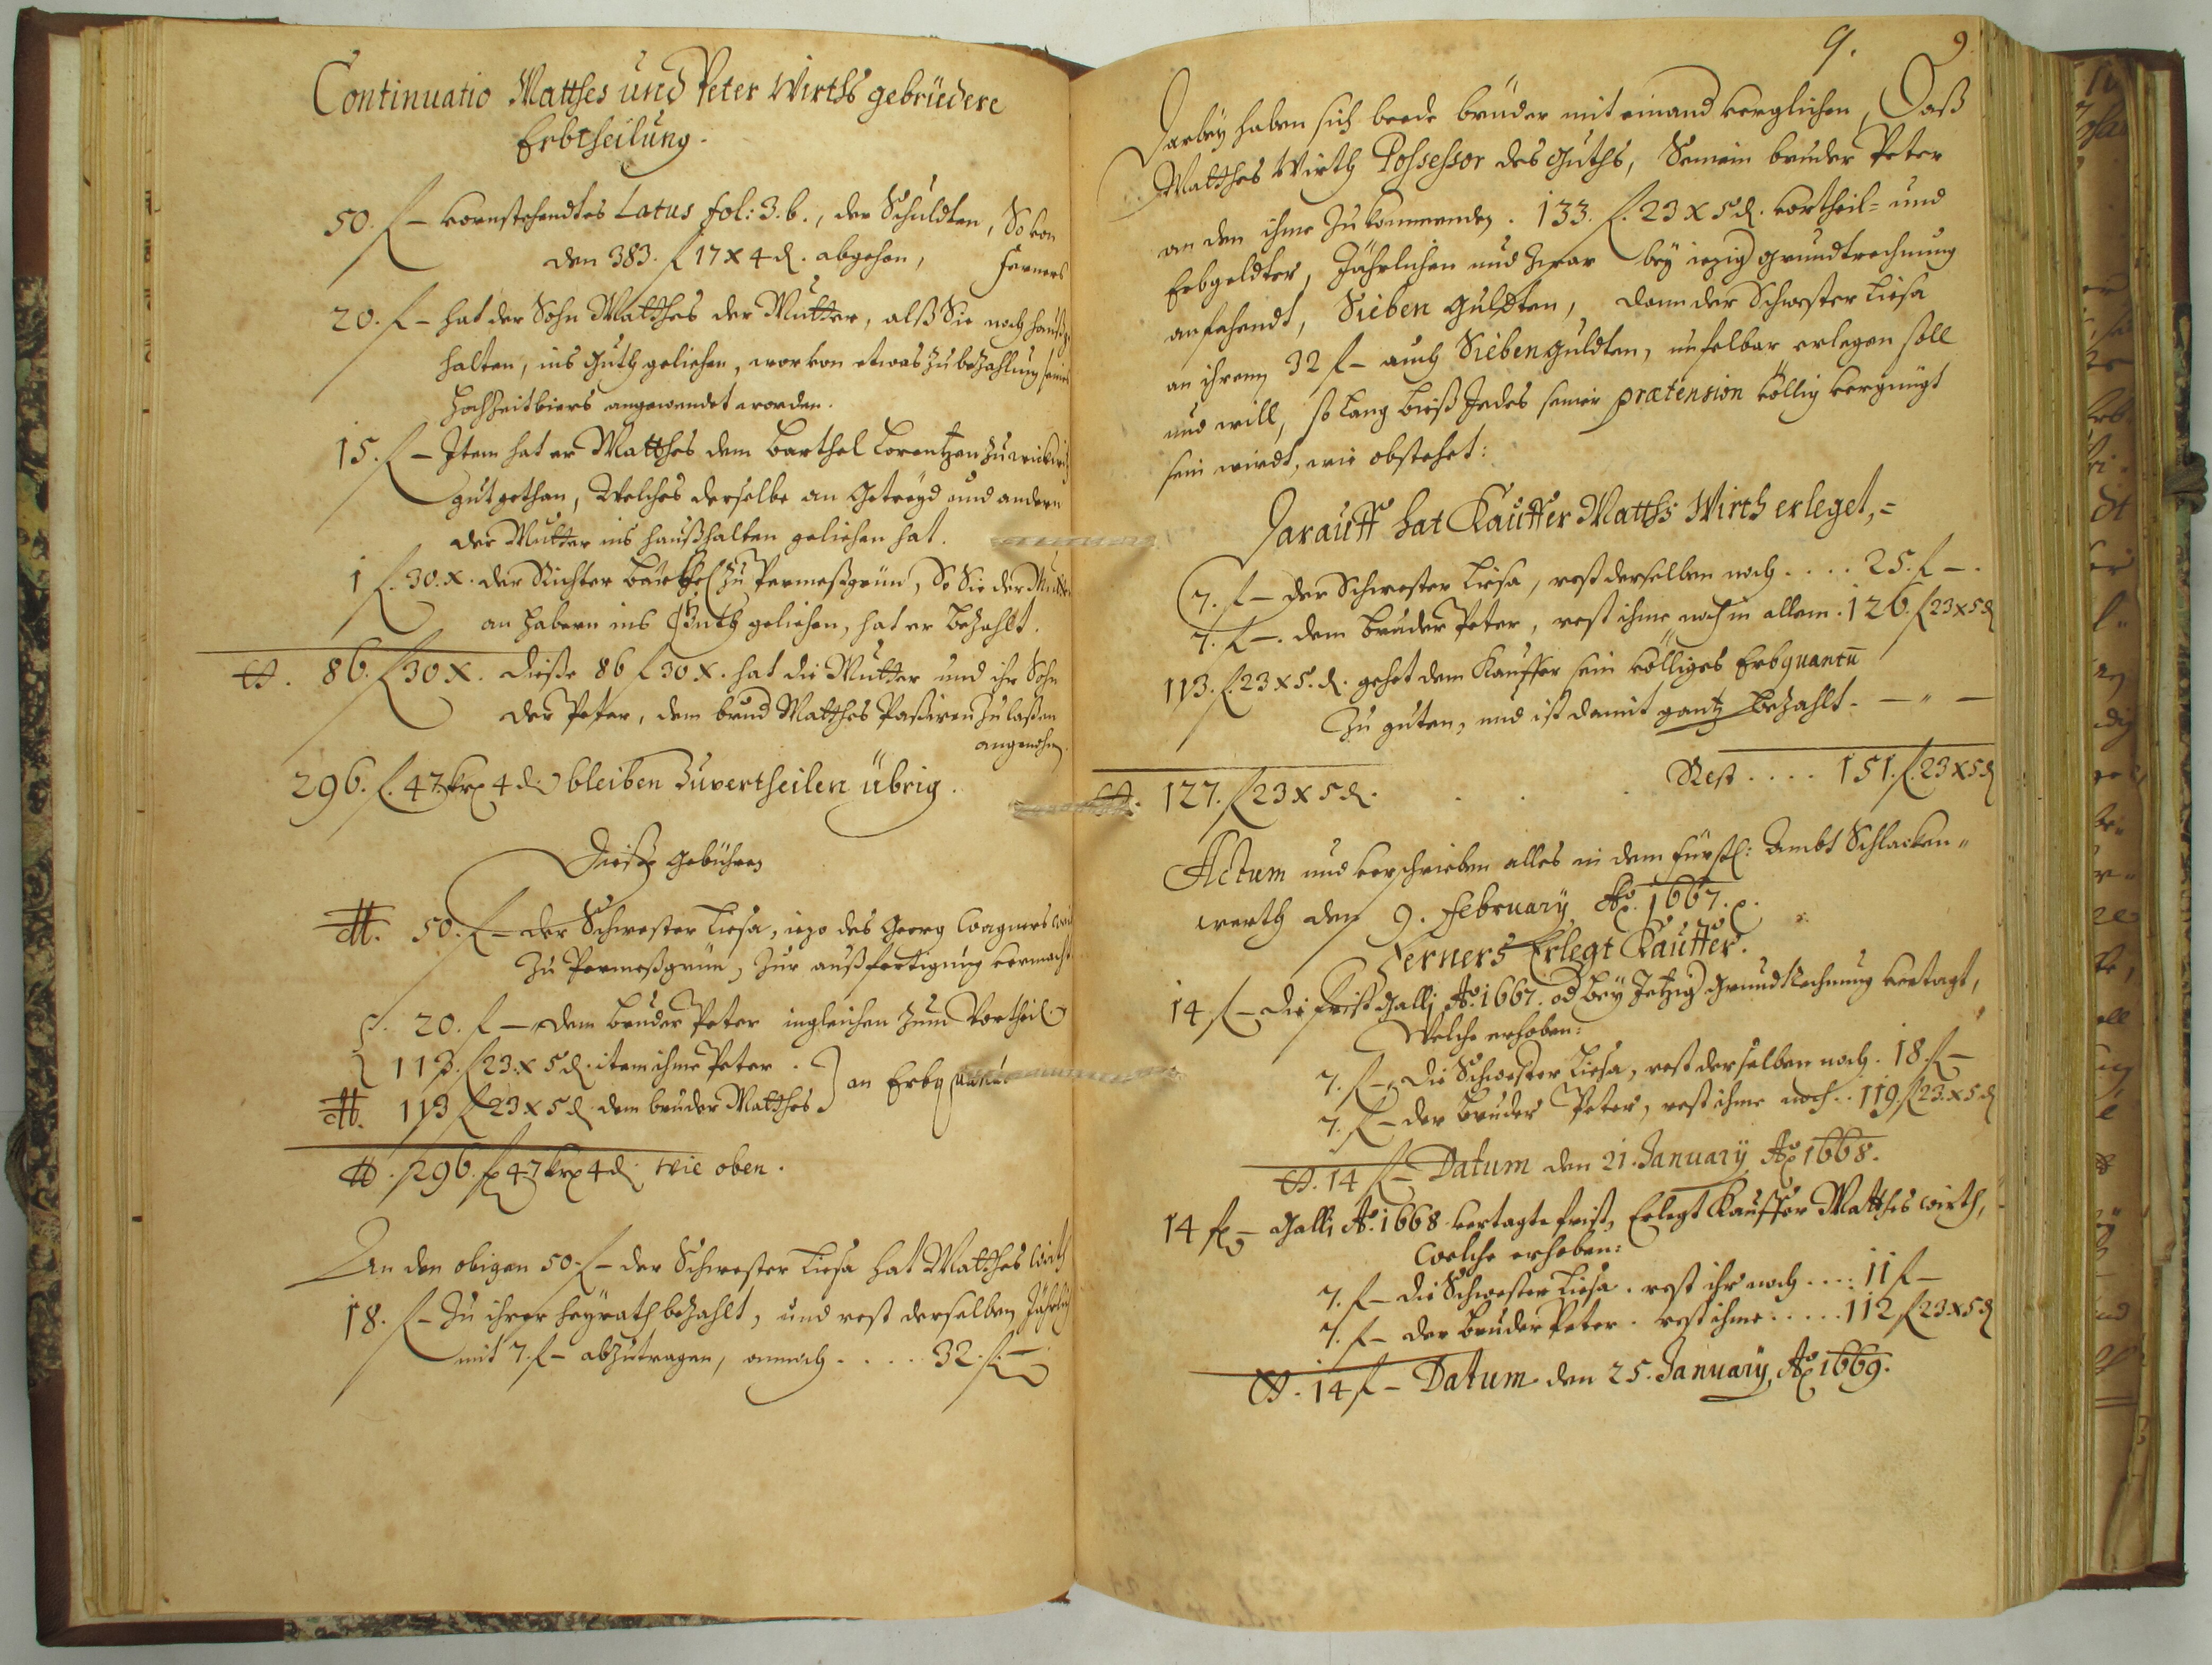 Continuatio Matthes und Peter Wirths gebrüedere
Erbtheilung.
50. f – vornstehendtes Latus fol: 3. b., der Schuldten, So von
den 383. f 17 x 4 d. abgehen, ferners
20. f – hat der Sohn Matthes der Mutter, alß Sie noch hauß
halten, ins Guth geliehen, worvon etwas zu bezahlung seines
Hochzeitbiers angewendet worden.
15. f – Item hat er Matthes dem Barthel Lorentzen zu
gut gethan, Welches derselbe an Getreyd und andern
der Mutter ins haußhalten geliehen hat.
1 f. 30. x. der Richter zu Permeßgrün, So Sie der Mutter
an Habern ins Guth geliehen, hat er bezahlt.
86. f 30 x. dieße 86 f 30 x. hat die Mutter und ihr Sohn
der Peter, dem brud Matthes Passiren zu laßen
angenohm.
296. f. 47 kr 4 d bleiben zuvertheilen übrig.
Dieße gebühren
50. f – der Schwester Liesa, iezo des Georg Wagners
zu Permeßgrün, zur außfertigung vermacht
20. f – dem bruder Peter ingleichen zum Vortheil.
113. f 23. x 5 d. item ihme Peter.
113 f 23 x 5 d. dem bruder Matthes } an Erbquantū
296. f 47 kr 4 d. wie oben.
An den obigen 50. f – der Schwester Liesa hat Matthes Wirth
18. f – zu ihrer heyrath bezahlt, und rest derselben Jährlich
mit 7. f – abzutragen, annoch .... 32. f –
9. 9.
Darbey haben sich beede brüder mit einand verglichen, Daß
Matthes Wirth Possessor des Guths, Seinem bruder Peter
an den ihme zukommenden. 133. f. 23 x 5 d. vortheil= und
Erbgeldter, Jährlichen und zwar bey iezig grundtrechnung
anfahendt, Sieben Guldten, dann der Schwester Liesa
an ihren 32 f – auch Sieben guldten, unfelbar erlegen soll
und will, so lang bieß Jedes seiner prætension völlig vergnügt
sein wirdt, wie obstehet:
Darauff hat Kauffer Matths Wirth erleget,=
7. f – der Schwester Liesa, rest derselben noch .... 25. f –.
7. f –. dem bruder Peter, rest ihme noch in allem. 126. f 23 x 5 d
113. f. 23 x 5. d. gehet dem Kauffer sein völliges Erbquantū
zu guten, und ist damit gantz bezahlt. – " –
Rest .... 151. f. 23 x 5 d
127. f 23 x 5 d.
Actum und verschrieben alles in dem fürstl: Ambt Schlacken=
werth den 9. February Ao. 1667.
Ferners Erlegt Kauffer.
14. f – die frist Galli Ao. 1667. od bey Jetzig grund Rechnung vertagt,
Welche erhoben:
7. f – die Schwester Liesa, rest derselben noch. 18. f –
7. f – der bruder Peter, rest ihme noch .. 119 f 23. x 5 d
14 f – Datum den 21. January Ao 1668.
14 f – Galli Ao. 1668 vertagte frist, Erlegt Kauffer Matthes Wirth,
Welche erhoben:
7. f – die Schwester Liesa. rest ihr noch .... 11 f –
7. f – der bruder Peter. rest ihme ..... 112 f 23. x 5 d
14 f – Datum den 25. January, Ao 1669.